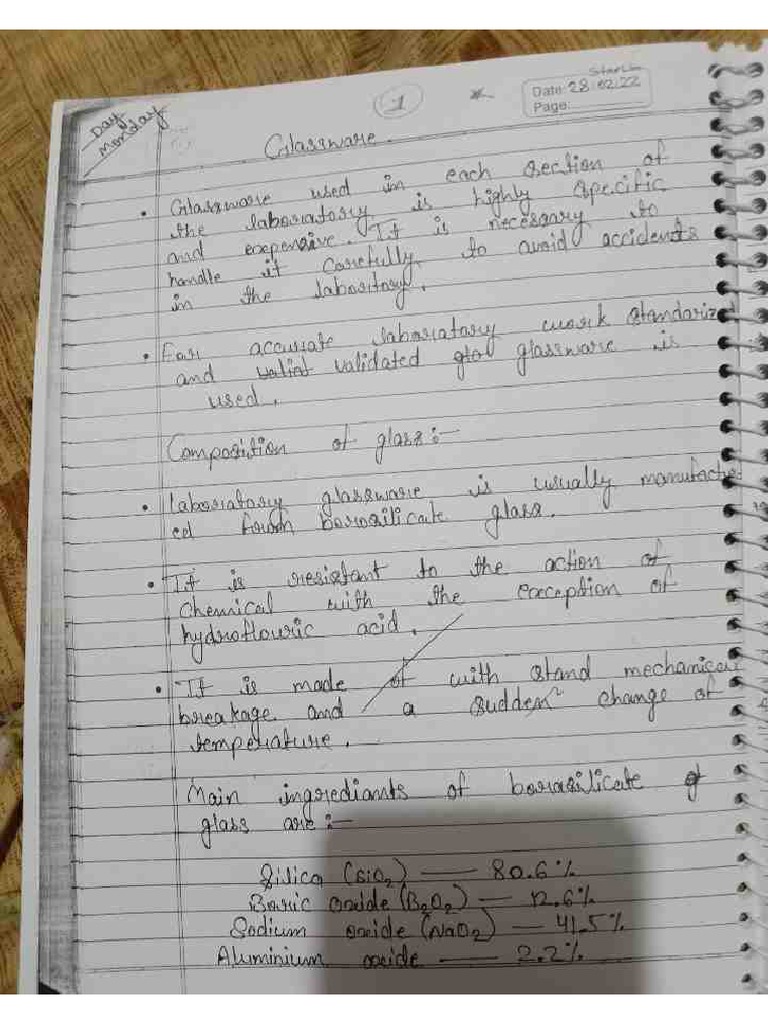 Day
Monday
1
Date: 28/02/22
Page:
Glassware
• Glassware used in each section of
the laboratory is highly specific
and expensive. It is necessary to
handle it carefully to avoid accidents
in the laboritory.
• For accurate laboratory work standarized
and validated glassware is
used.
Composition of glass:-
• laboratory glassware is usually manufactur
ed from borosilicate glass.
• It is resistant to the action of
chemical with the exception of
hydroflouric acid.
• It is made of with stand mechanical
breakage and a sudden change of
temperature.
Main ingrediants of borosilicate
glass are:-
Silica (SiO2) — 80.6%
Boric oxide (B2O2) — 12.6%
Sodium oxide (NaO2) — 41.5%
Aluminium oxide — 2.2%